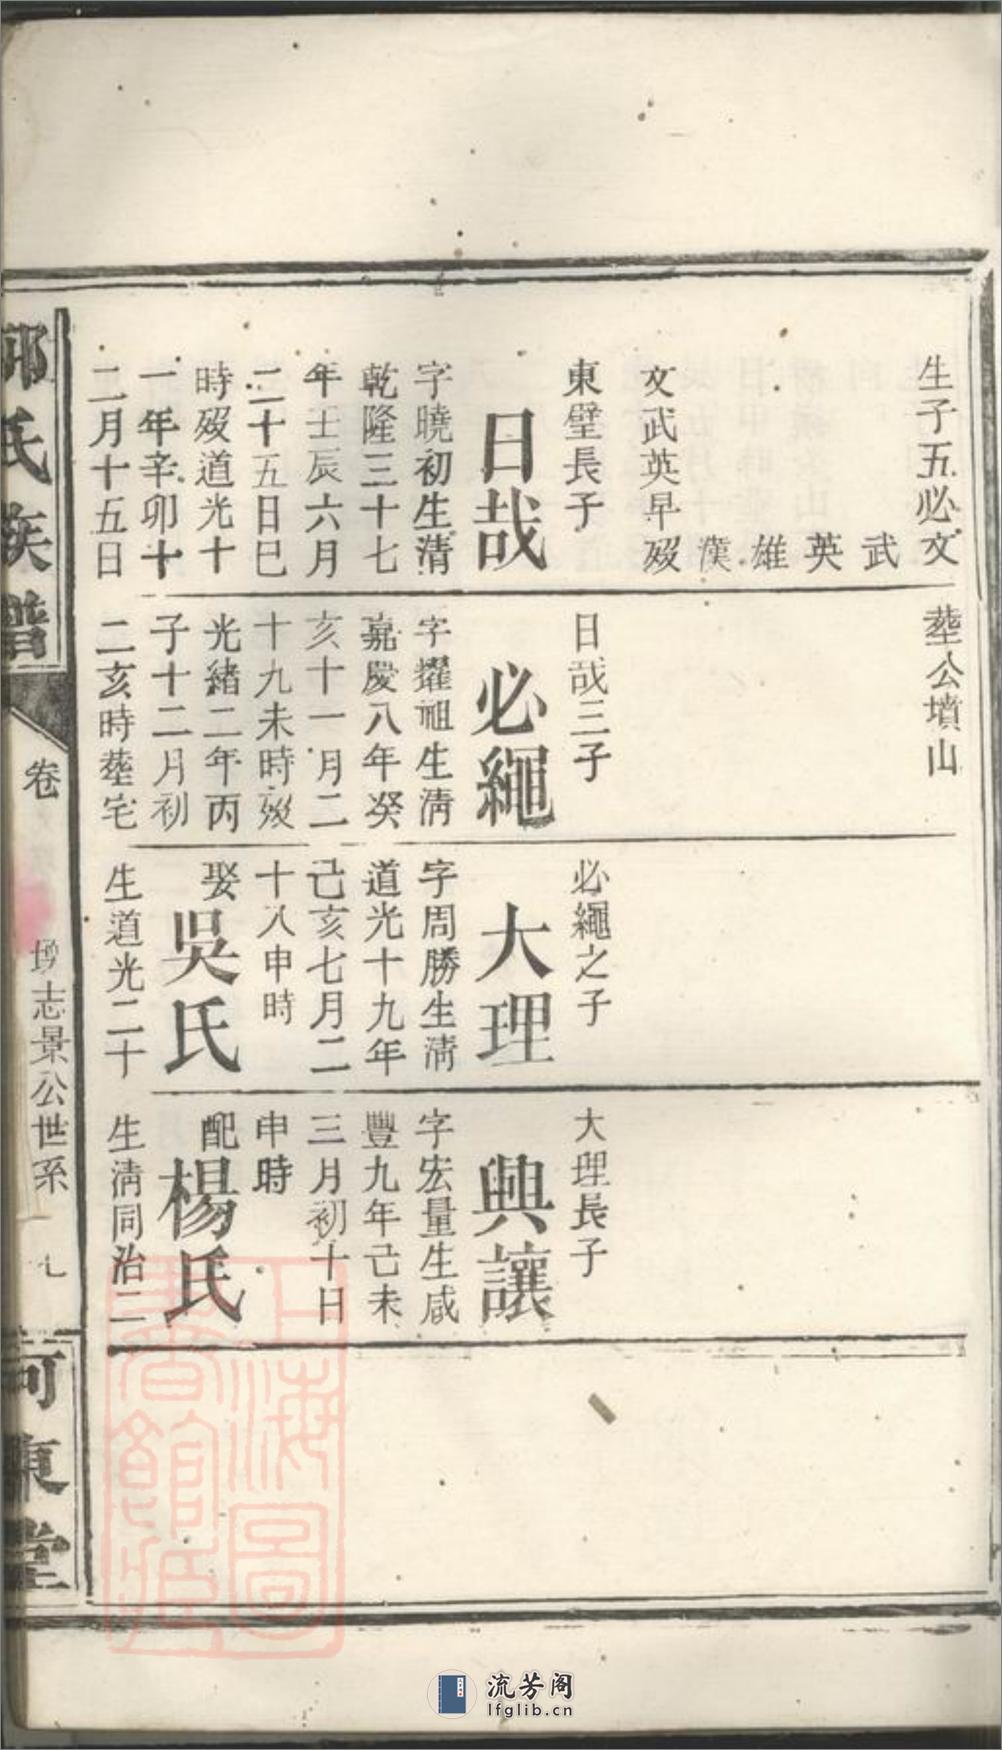 生子五必文
武
英
雄
漢
文武英早歿
東璧長子
日哉
字曉初生清
乾隆三十七
年壬辰六月
二十五日巳
時歿道光十
一年辛卯十
二月十五日
塟公墳山
日哉三子
必繩
字擢祖生清
嘉慶八年癸
亥十一月二
十九未時歿
光緒二年丙
子十二月初
二亥時塟宅
必繩之子
大理
字周勝生清
道光十九年
己亥七月二
十八申時
娶吳氏
生道光二十
大理長子
興讓
字宏量生咸
豐九年己未
三月初十日
申時
配楊氏
生清同治二
氏族譜
卷
志景公世系
河東堂
上海圖書館藏
流芳阁
lfglib.cn